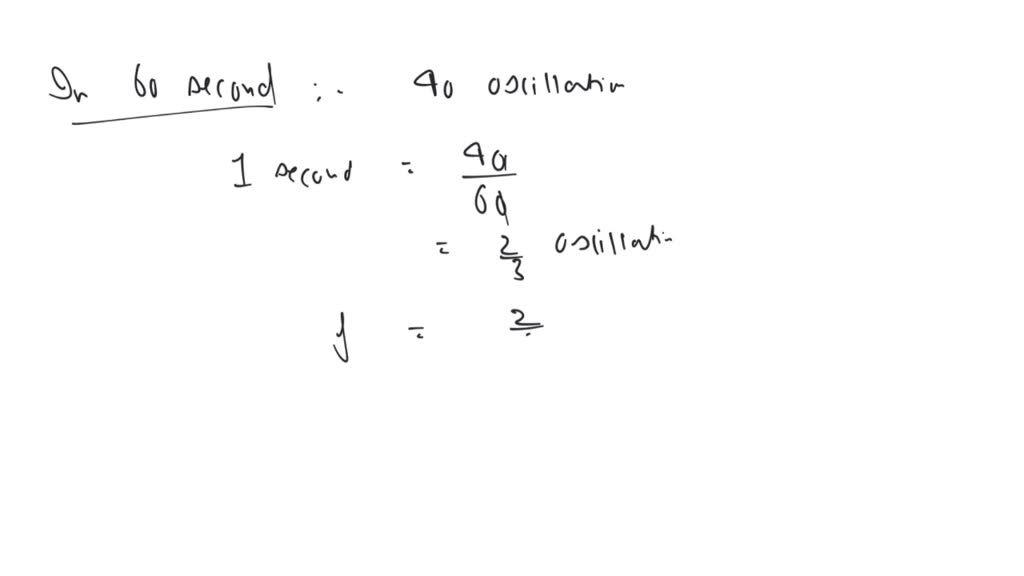 In 60 second :. 40 oscillation
1 second = 40/60
= 2/3 oscillation
f = 2/